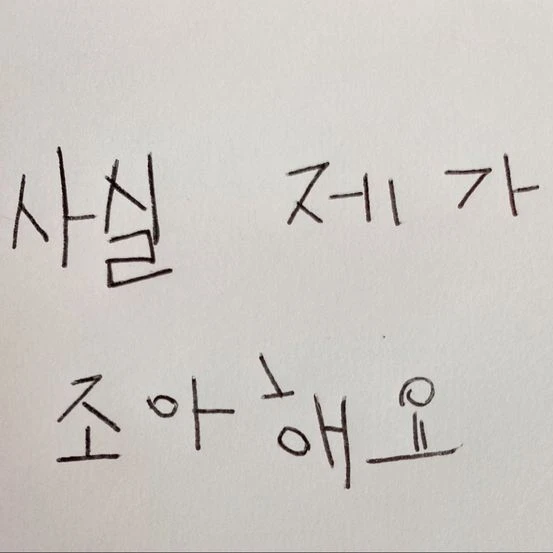 사실 제가
조아해요